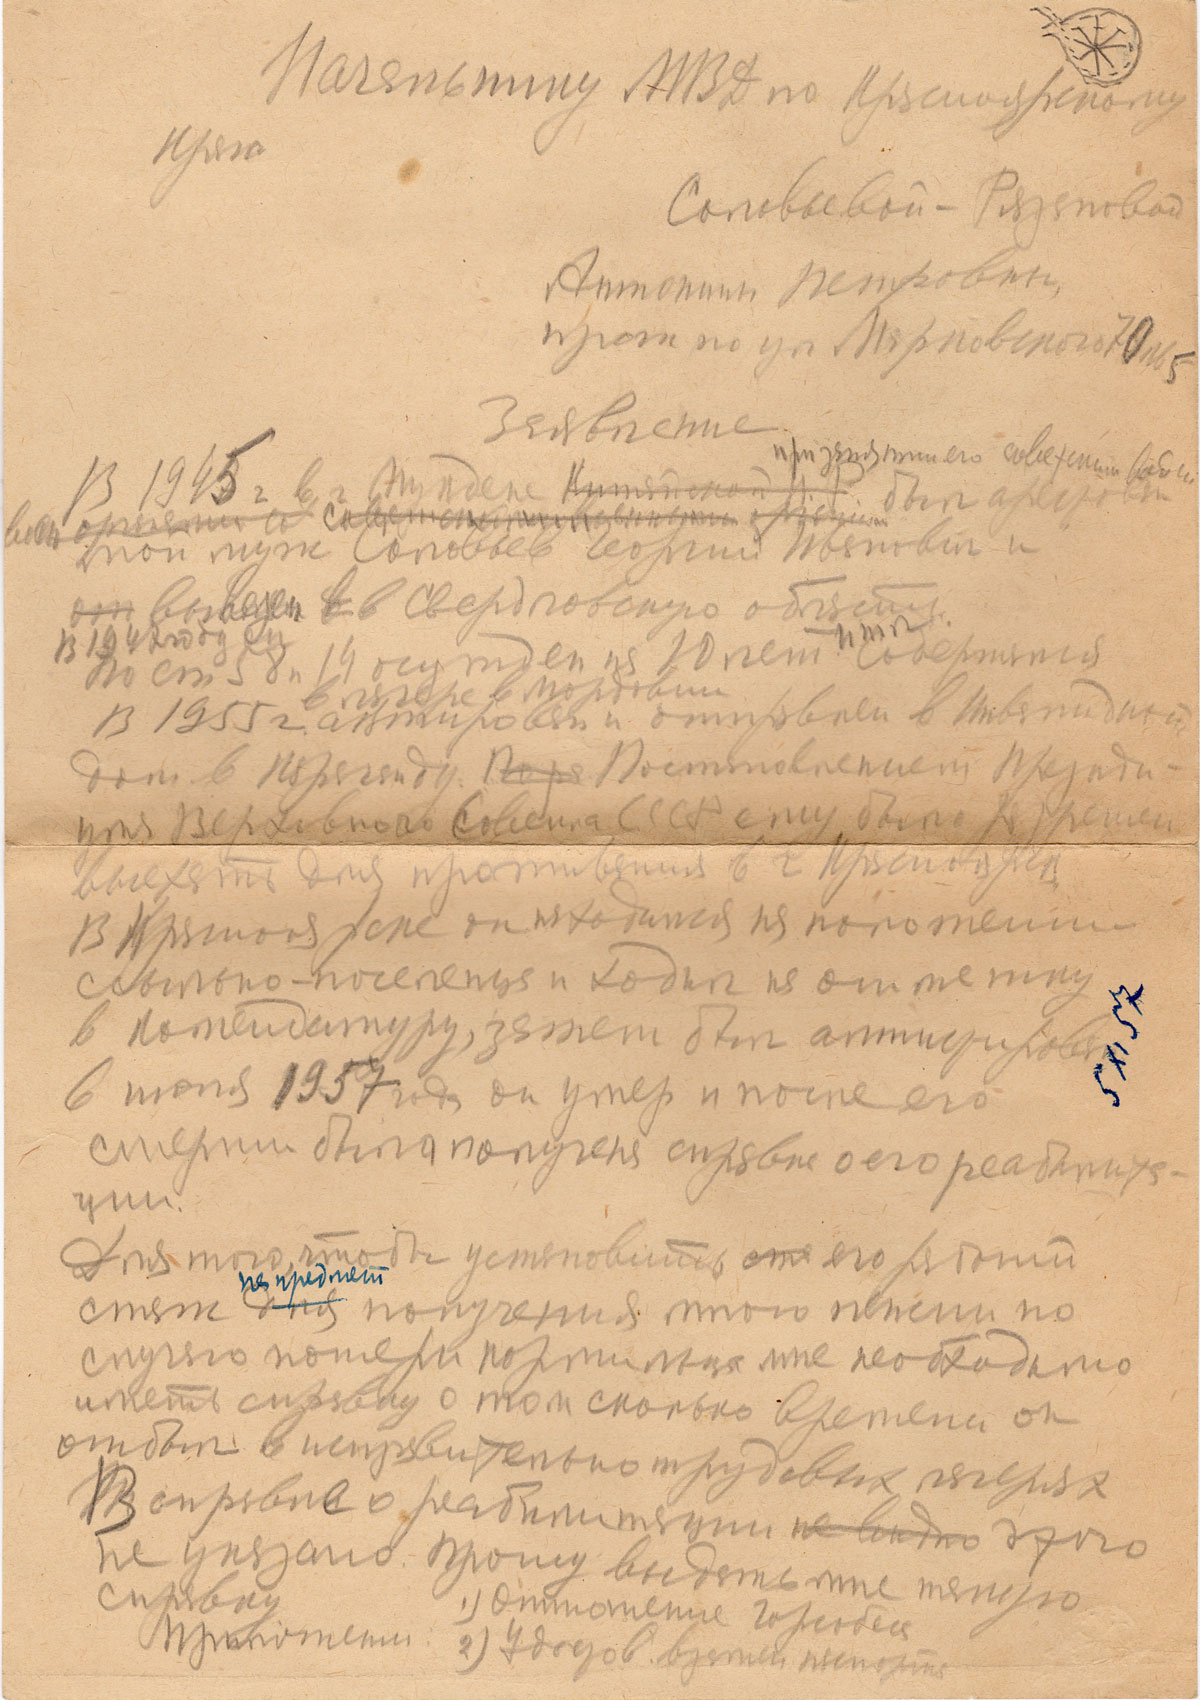 Начальнику МВД по Красноярскому
края
Соловьевой - Рязановой
Антонины Петровны,
прож по ул Марковского 70 кв 5
Заявление.
при занятии его советскими войсками
В 1945 г в г Мукдене Китайской Н. Р. был арестован
мой муж Соловьев Георгий Иванович и
он вывезен в Свердловскую область.
В 194 году он
по ст 58 п 14 осужден на 10 лет
в лагере в Мордовии
В 1955 г. актирован и отправлен в Инвалидный
дом в Караганду. Постановлением Президи-
ума Верховного Совета СССР ему было разрешен
выехать для проживания в г Красноярск
В Красноярске он находился на положении
ссыльно-поселенца и ходил на отметку
в комендатуру, затем был амнистирован
в июля 1957 года он умер и после его
смерти была получена справка о его реабилита-
ции.
5 XI 57
Для того, чтобы установить его рабочий
на предмет
стаж для получения мною пенсии по
случаю потери кормильца мне необходимо
иметь справку о том сколько времени он
отбыл в исправительно трудовых лагерях
В справке о реабилитации не видно этого
не указано. Прошу выдать мне такую
справку
Приложении: 1) Отношение Горсобеса
2) Удостов. взамен паспорта